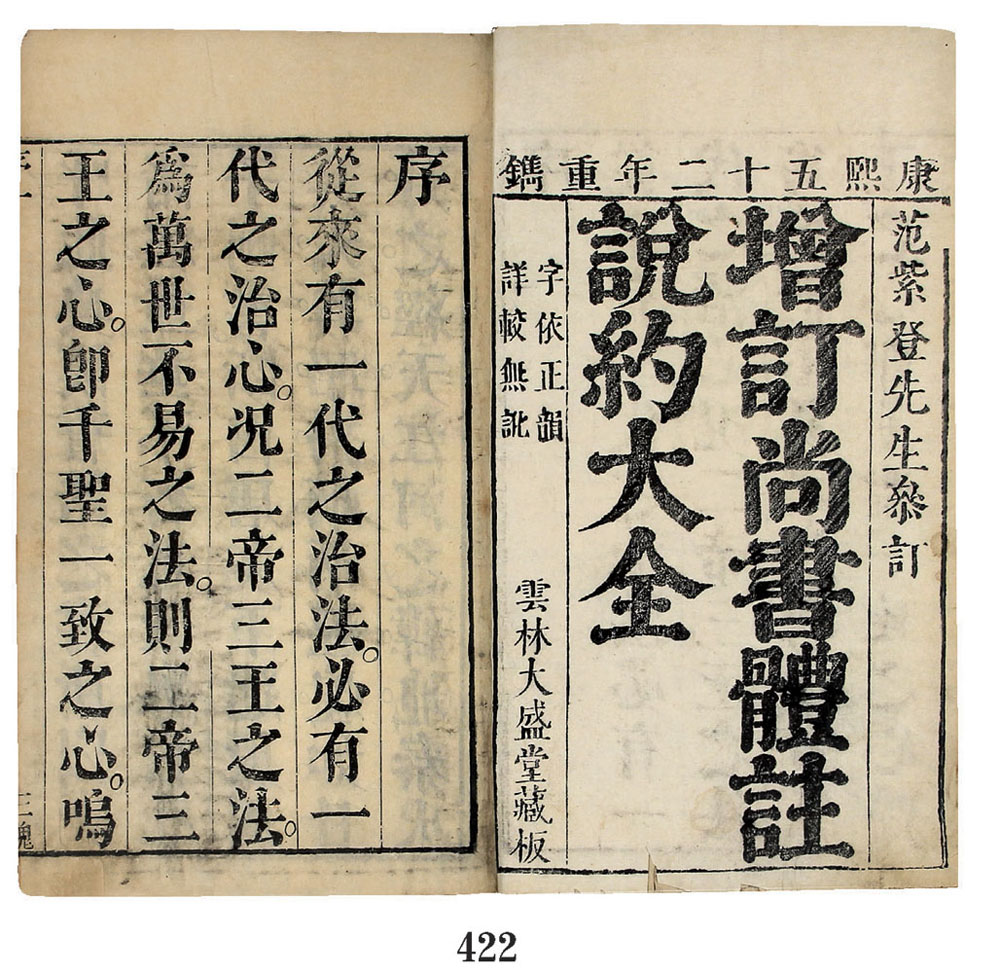 康熙五十二年重鐫
范紫登先生叅訂
增訂尚書體註
說約大全
字依正韻
詳較無訛
雲林大盛堂藏板
序
從來有一代之治法。必有一
代之治心。况二帝三王之法。
為萬世不易之法。則二帝三
王之心。即千聖一致之心。嗚
422